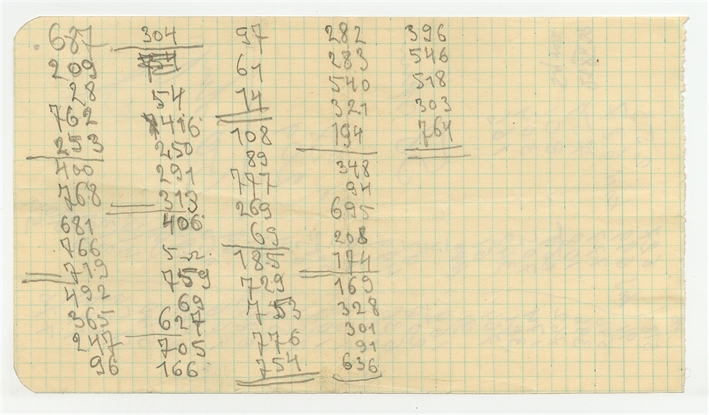 687
209
28
762
253
400
768
681
766
719
492
365
247
96
304
54
416
250
291
313
406
522
759
69
627
705
166
97
61
14
108
89
777
269
69
185
729
753
776
754
282
283
540
321
194
348
94
695
208
174
169
328
301
91
636
396
546
518
303
764